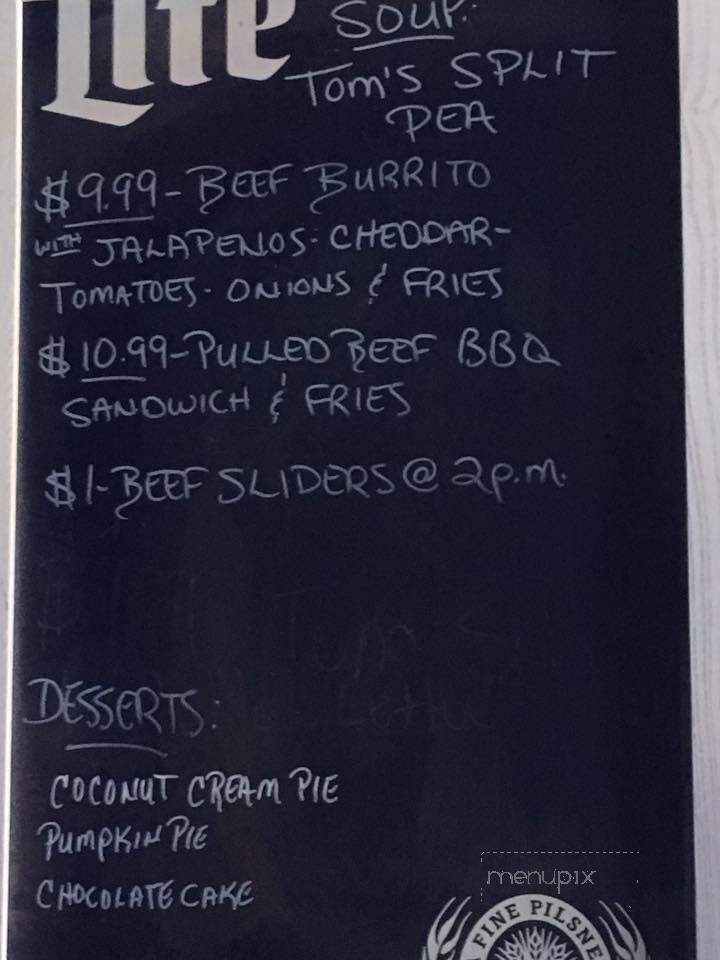 Lite
SOUP:
TOM'S SPLIT
PEA
$9.99-BEEF BURRITO
WITH JALAPENOS- CHEDDAR-
TOMATOES- ONIONS & FRIES
$10.99-PULLED BEEF BBQ
SANDWICH & FRIES
$1-BEEF SLIDERS @ 2p.m.
DESSERTS:
COCONUT CREAM PIE
PUMPKIN PIE
CHOCOLATE CAKE
menupix
FINE PILSNE